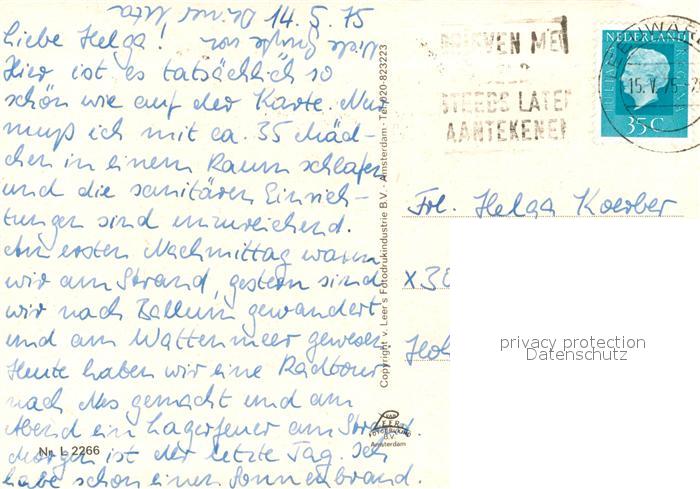 14. 5. 75
Liebe Helga!
Hier ist es tatsächlich so
schön wie auf der Karte. Nur
muß ich mit ca. 35 Mäd-
chen in einem Raum schlafen
und die sanitären Einrich-
tungen sind unzureichend.
Am ersten Nachmittag waren
wir am Strand, gestern sind
wir nach Ballum gewandert
und am Wattenmeer gewesen.
Heute haben wir eine Radtour
nach Nes gemacht und am
Abend ein Lagerfeuer am Strand.
Morgen ist der letzte Tag. Ich
habe schon einen Sonnenbrand.
Viele Grüße von
Deiner
Nr. L 2266
Copyright v. Leer's Fotodrukindustrie B.V. - Amsterdam - Tel. 020-823223
VAN
LEER
FOTODRUKIND
B.V.
Amsterdam
BRIEVEN MET
GELD
STEEDS LATEN
AANTEKENEN
NEDERLAND
JULIANA
REGINA
35C
15.V.75
Frl. Helga Koerber
privacy protection
Datenschutz